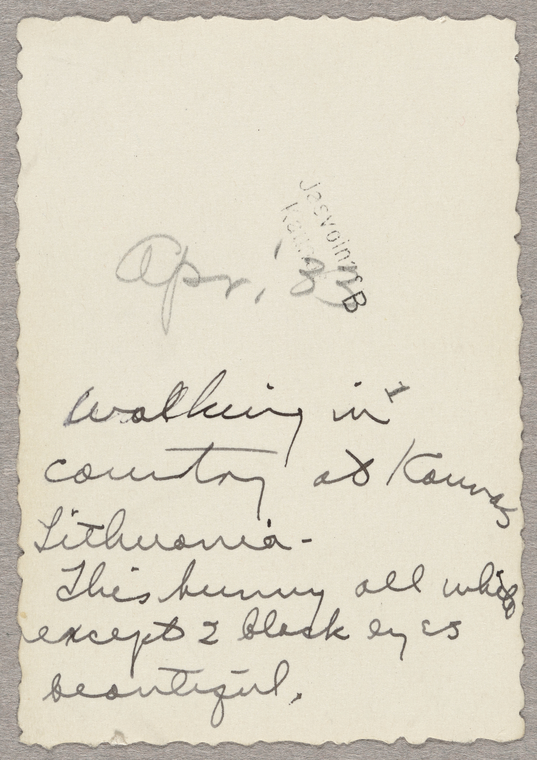 Apr. '33
walking in
country at Kaunas
Lithuania-
This bunny all white
except 2 black eyes
beautiful.